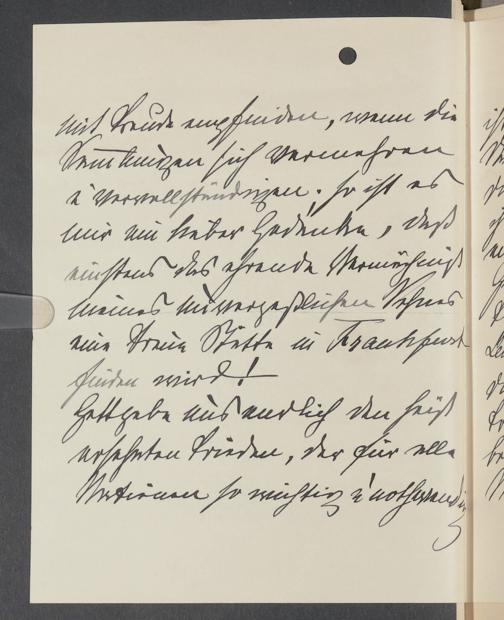 mit Freude empfinden, wenn die
Sammlungen sich vermehren
u vervollständigen; so ist es
mir ein lieber Gedanke, daß
einstens das ehrende Vermächniß
meines unvergeßlichen Sohnes
eine treue Stätte in Frankfurt
finden wird!
Gott gebe uns endlich den heiß
ersehnten Frieden, der für alle
Nationen so wichtig u nothwendig